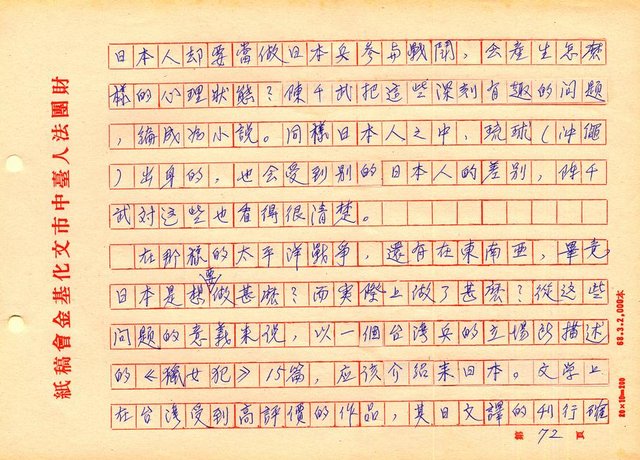 日本人却要當做日本兵參與戰鬪，会產生怎麽
樣的心理狀態？陳千武把這些深刻有趣的问題
，編成為小說。同樣日本人之中，琉球（冲繩
）出身的，也会受到别的日本人的差别，陈千
武对这些也看得很清楚。
在那樣的太平洋戰爭，還有在東南亜，畢竟
日本是想要做甚麽？而実際上做了甚麽？從这些
问題的意義来说，以一個台湾兵的立場所描述
的《獵女犯》15篇，应该介绍来日本。文学上
在台湾受到高評價的作品，其日文譯的刊行雖
財團法人臺中市文化基金會稿紙
68.3.2,000本
20×10=200
第 72 頁